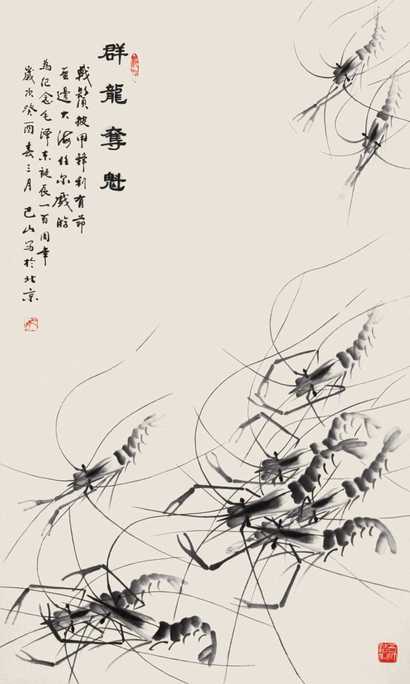 群龍奪魁
戟鬚披甲稱利有節
無邊大海任尔戲游
為紀念毛澤東誕辰一百周年
歲次癸酉春三月巴山写於北京